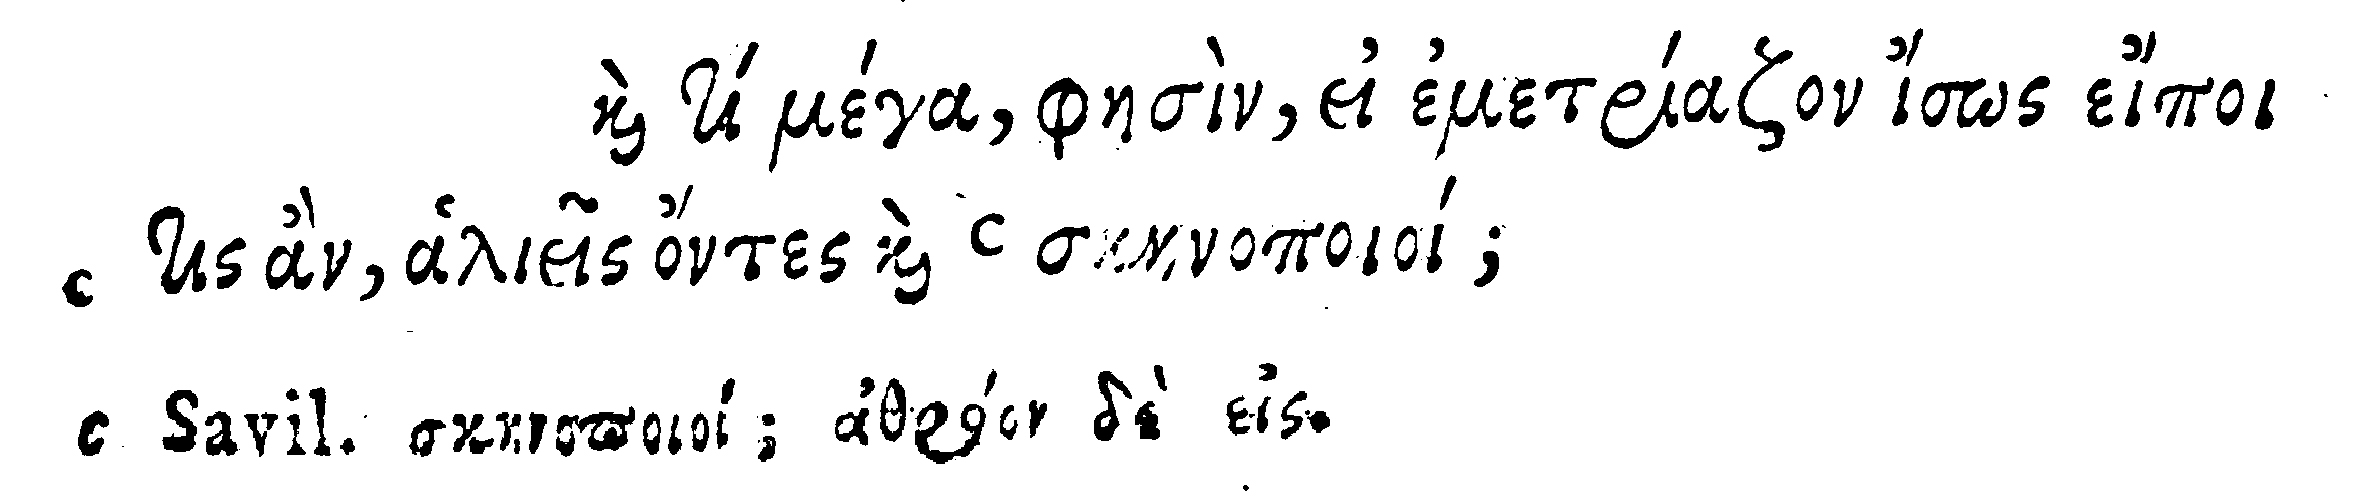 καὶ τί μέγα, φησὶν, εἰ ἐμετρίαζον ἴσως εἴποι
c τις ἂν, ἁλιεῖς ὄντες καὶ c σκηνοποιοί;
c Savil. σκηνοποιοί; ἀθρόον δὲ εἰς.